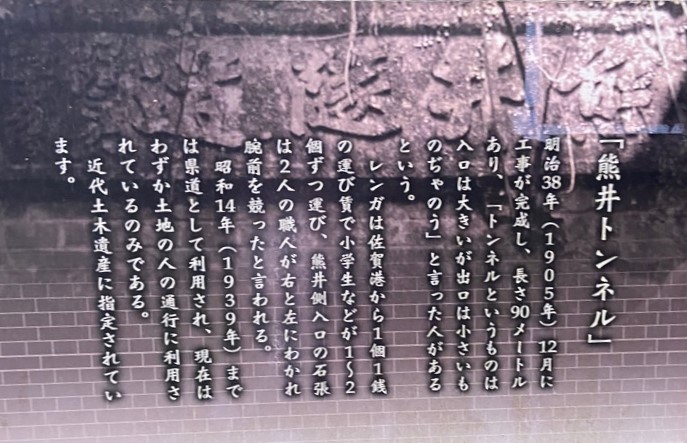 「熊井トンネル」
明治38年（1905年）12月に
工事が完成し、長さ90メートル
あり、「トンネルというものは
入口は大きいが出口は小さいも
のぢゃのう」と言った人がある
という。
レンガは佐賀港から1個1銭
の運び賃で小学生などが1〜2
個ずつ運び、熊井側入口の石張
は2人の職人が右と左にわかれ
腕前を競ったと言われる。
昭和14年（1939年）まで
は県道として利用され、現在は
わずか土地の人の通行に利用さ
れているのみである。
近代土木遺産に指定されてい
ます。